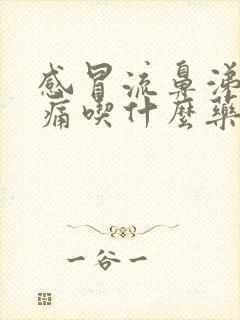 感冒流鼻涕
痛喫什麼藥
一谷一